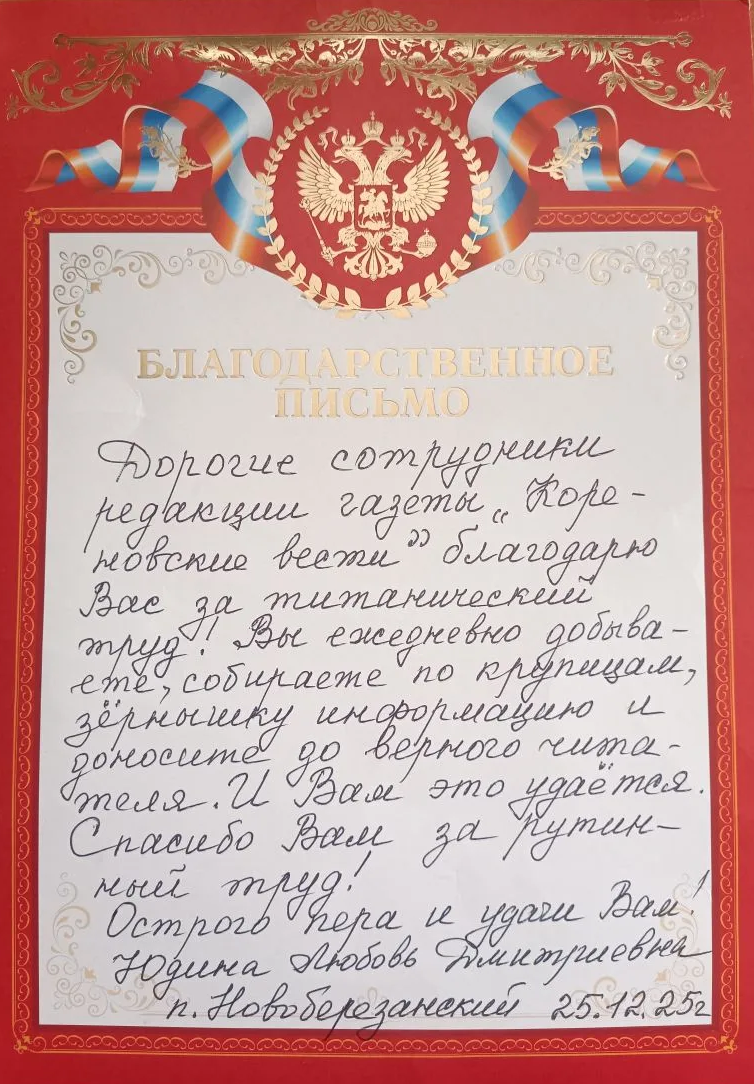 БЛАГОДАРСТВЕННОЕ
ПИСЬМО
Дорогие сотрудники
редакции газеты „Коре-
новские вести” благодарю
Вас за титанический
труд! Вы ежедневно добыва-
ете, собираете по крупицам,
зёрнышку информацию и
доносите до верного чита-
теля. И Вам это удаётся.
Спасибо Вам за рутин-
ный труд!
Острого пера и удачи Вам!
Юдина Любовь Дмитриевна
п. Новоберезанский 25.12.25г